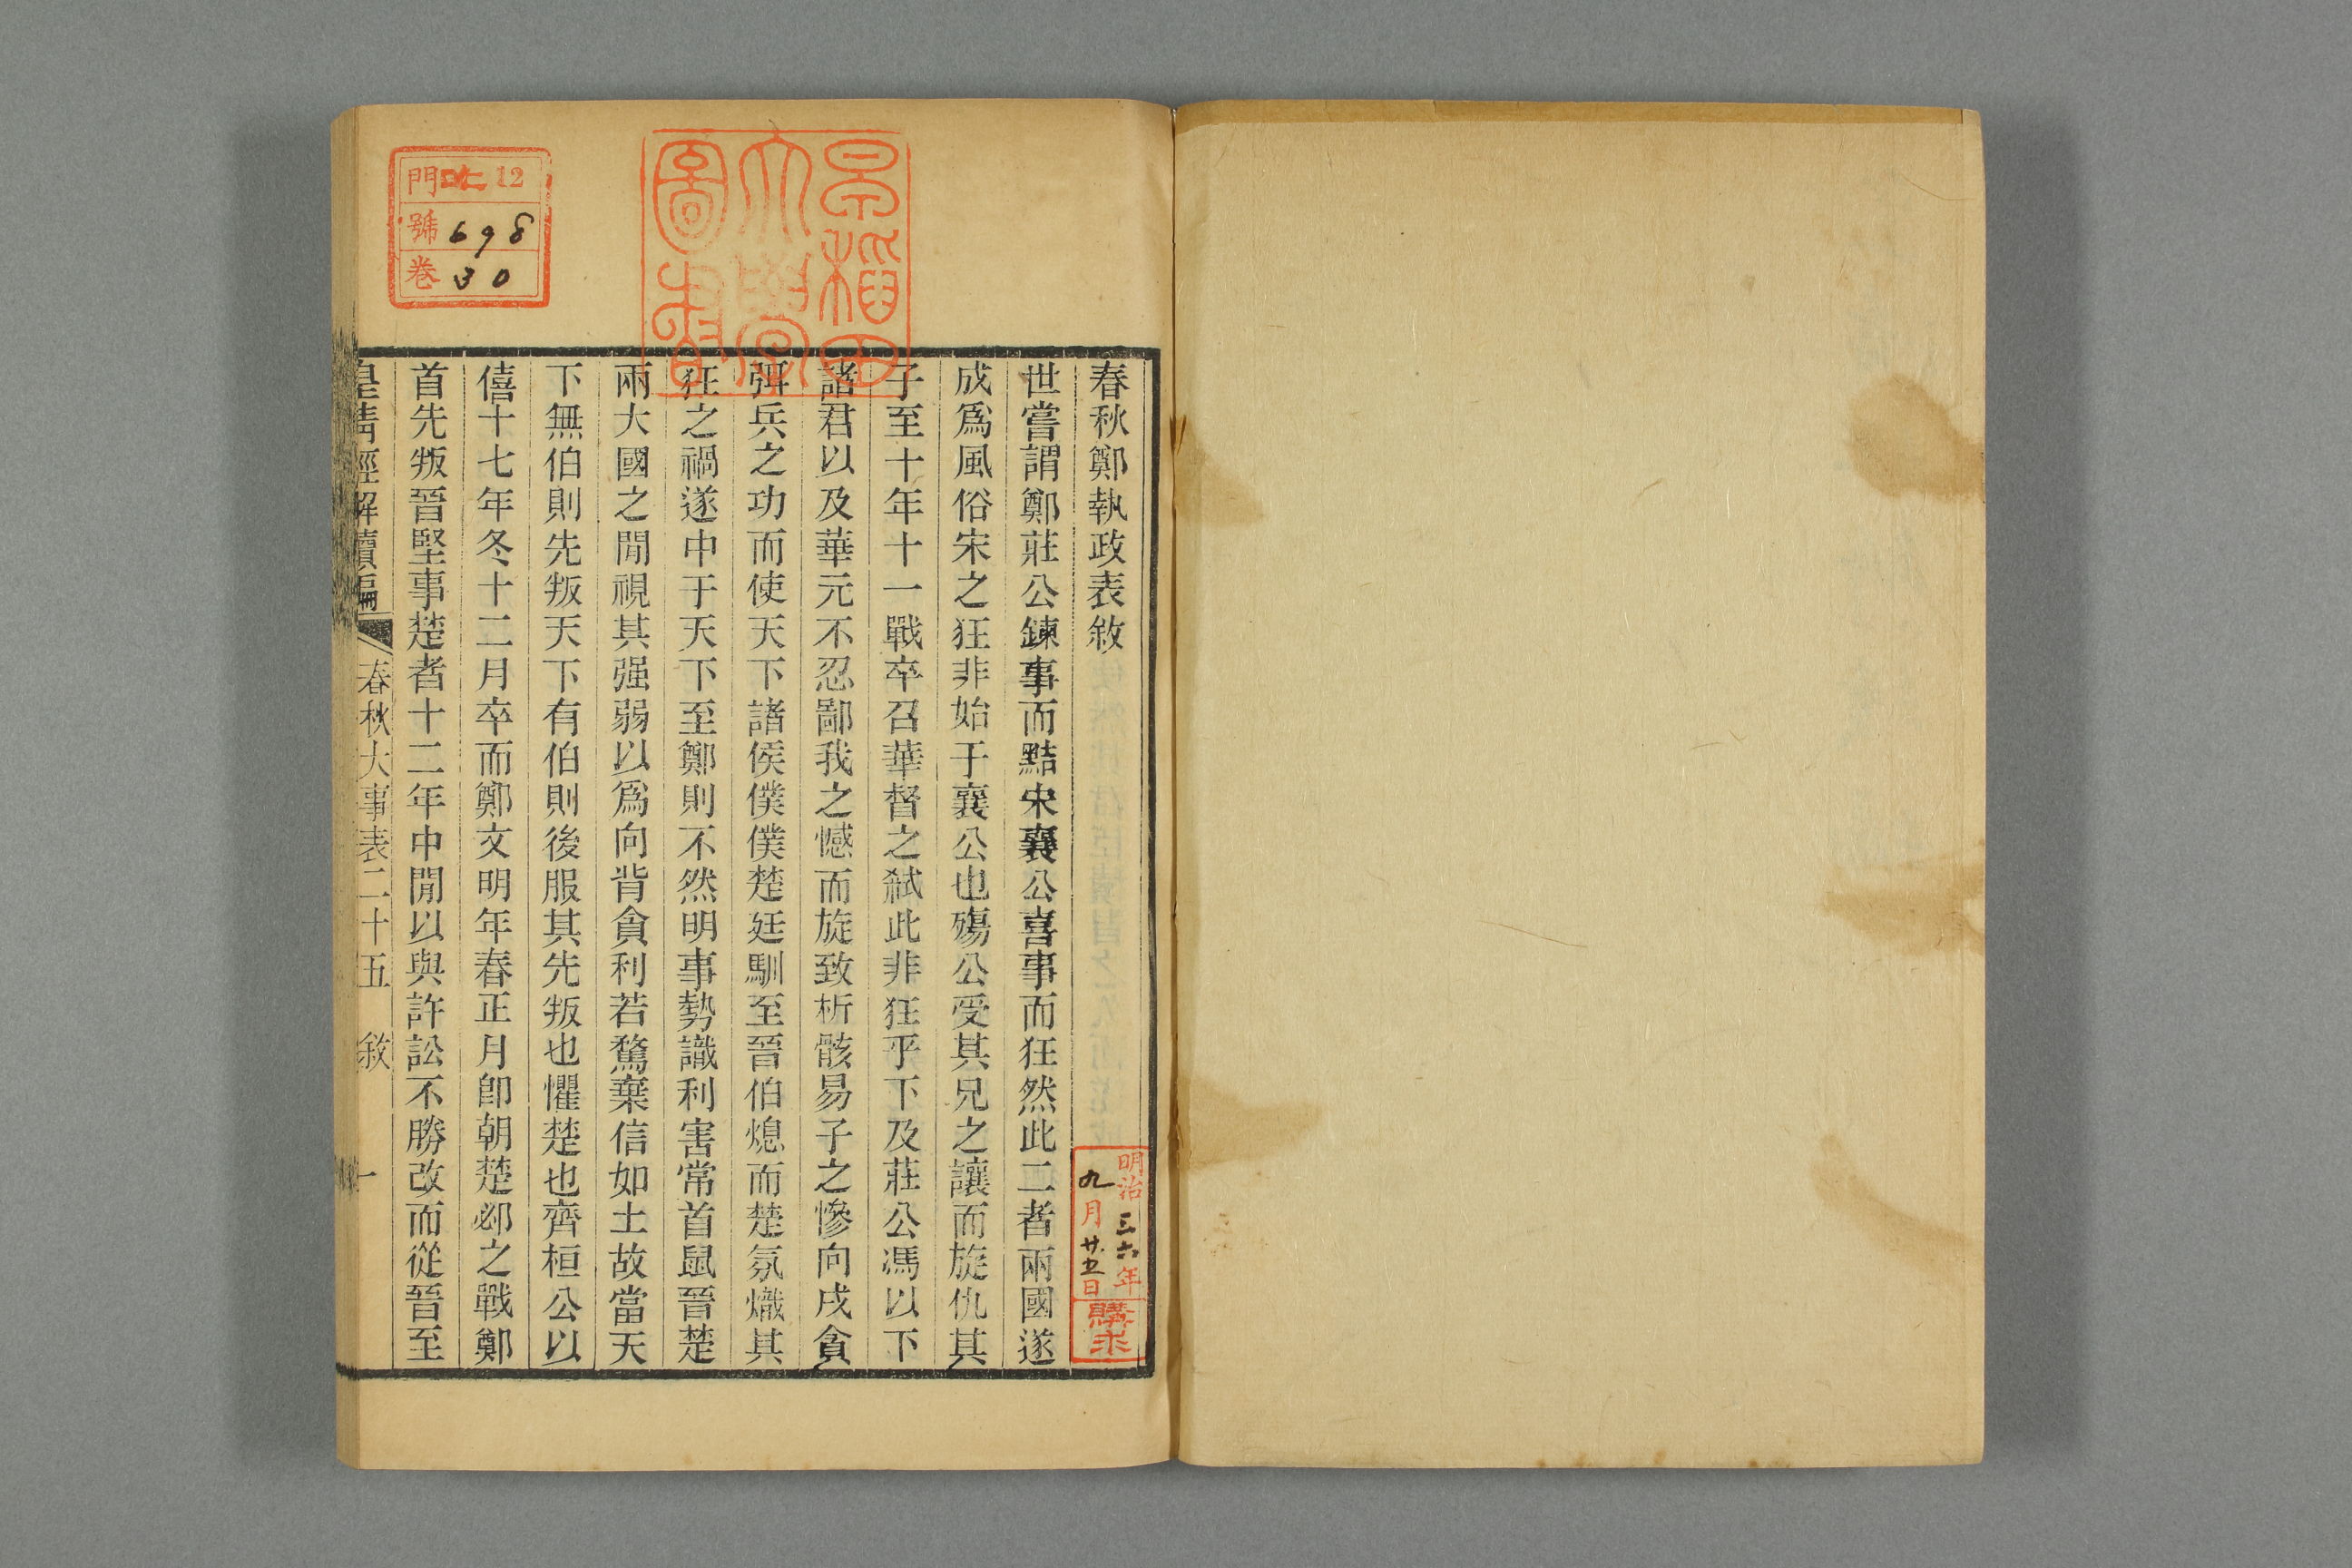 春秋鄭執政表敘
世嘗謂鄭莊公鍊事而黠宋襄公喜事而狂然此二者兩國遂
成爲風俗宋之狂非始于襄公也殤公受其兄之讓而旋仇其
子至十年十一戰卒召華督之弑此非狂乎下及莊公馮以下
諸君以及華元不忍鄙我之憾而旋致析骸易子之慘向戌貪
弭兵之功而使天下諸侯僕僕楚廷馴至晉伯熄而楚氛熾其
狂之禍遂中于天下至鄭則不然明事勢識利害常首鼠晉楚
兩大國之閒視其强弱以爲向背貪利若騖棄信如土故當天
下無伯則先叛天下有伯則後服其先叛也懼楚也齊桓公以
僖十七年冬十二月卒而鄭文明年春正月卽朝楚邲之戰鄭
首先叛晉堅事楚者十二年中閒以與許訟不勝改而從晉至
皇清經解續編 春秋大事表二十五 敘 一
明治三六年
九月廿五日
購求
早稻田
大學
圖書
門 12
號 698
卷 30